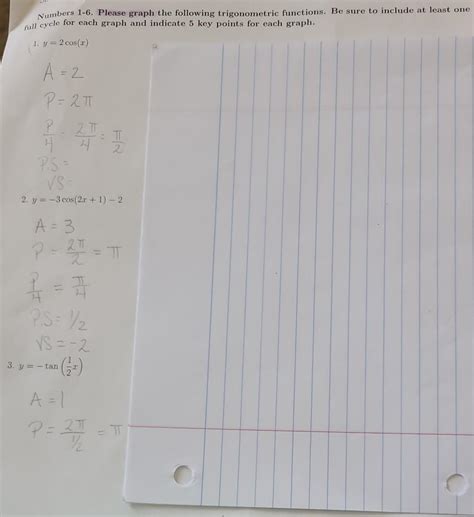 Numbers 1-6. Please graph the following trigonometric functions. Be sure to include at least one
full cycle for each graph and indicate 5 key points for each graph.
1. y = 2 cos(x)
A = 2
P = 2π
P/4 = 2π/4 = π/2
P.S =
VS =
2. y = −3 cos(2x + 1) − 2
A = 3
P = 2π/2 = π
P/4 = π/4
P.S = 1/2
VS = -2
3. y = − tan (1/2 x)
A = 1
P = 2π/½ = π